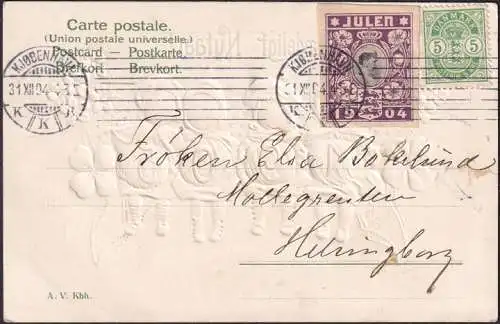 Carte postale.
(Union postale universelle.)
Postcard — Postkarte
Brefkort — Brevkort.
KJØBENHAVN
31 XII 04
K K B
JULEN
1904
KJØBENHAVN
31 XII 04
K
DANMARK
5 5
Frøken Elsa Bokelund
Møllegrenten
Helsingborg
A. V. Kbh.